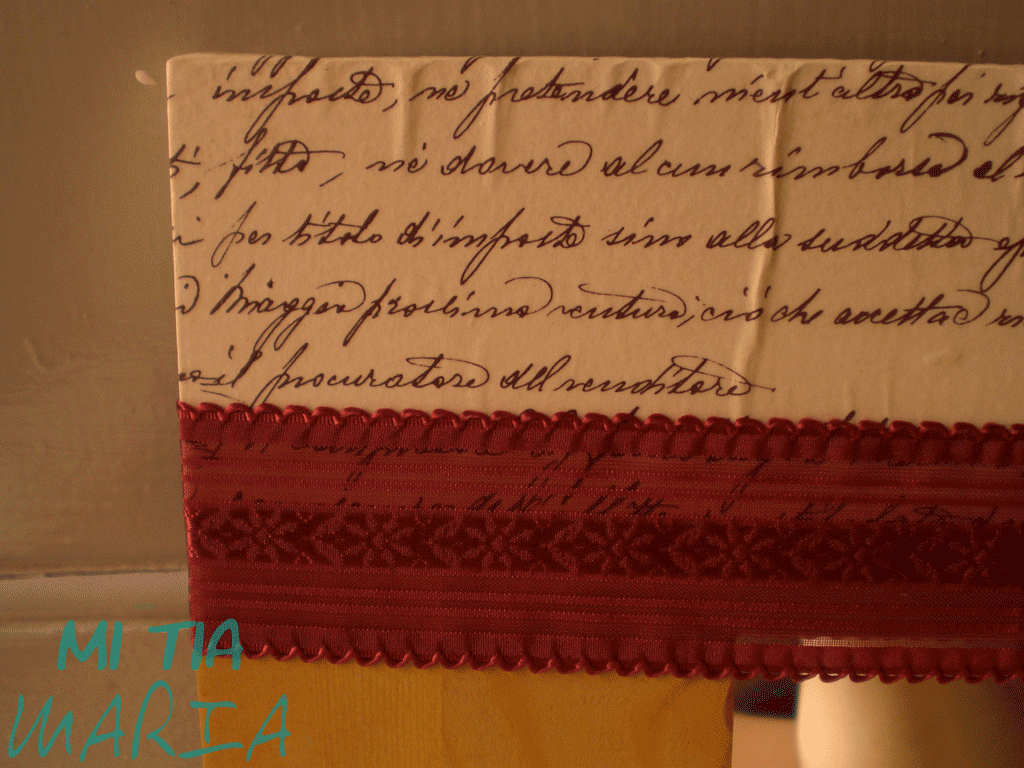 imposte, nè pretendere nient'altro per
fitto, nè dovere alcun rimborso
per titolo d'imposte sino alla suddetta
Maggio prossimo venturo, ciò che accetta
il procuratore del venditore
MI TIA
MARIA